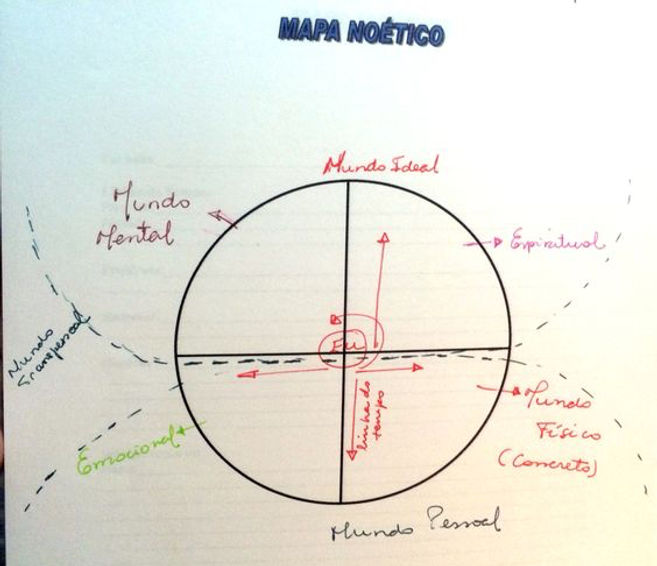 MAPA NOÉTICO
Mundo Ideal
Mundo
Mental
Espiritual
Mundo
Transpessoal
Eu
linha do
tempo
Mundo
Físico
(Concreto)
Emocional
Mundo Pessoal